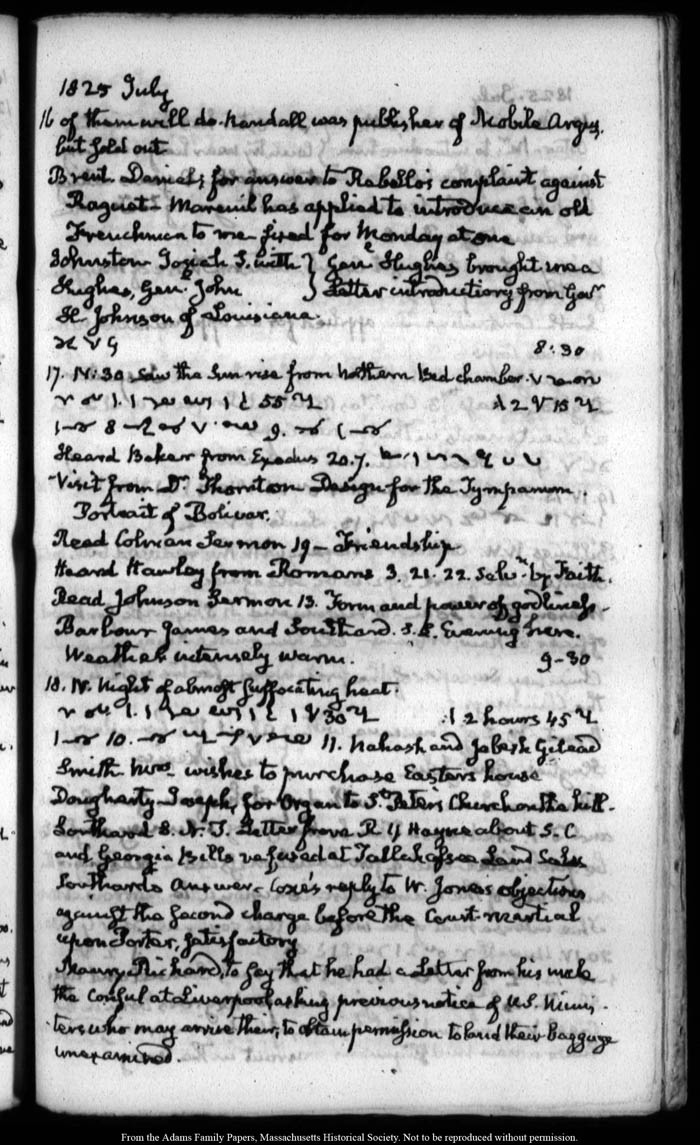 1825 July
16 of them will do. Randall was publisher of Mobile Argus,
but sold out
Brent Daniel; for answer to Rebello's complaint against
Raguet - Mareuil has applied to introduce an old
Frenchman to me - fixed for Monday at one
Johnston Josiah S. with } Gen. Hughes brought me a
Hughes, Gen. John } Letter introductory from Gov.r
H. Johnson of Louisiana.
8:30
17. IV:30 Saw the Sun rise from Northern Bed chamber.
Heard Baker from Exodus 20.7.
Visit from Dr. Thornton Design for the Tympanum.
Portrait of Bolivar.
Read Colman Sermon 19 - Friendship
Heard Hawley from Romans 3. 21. 22. Salv.n by Faith.
Read Johnson Sermon 13. Form and power of godliness -
Barbour James and Southard. S. L. Evening here.
Weather intensely warm. 9-30
18. IV. Night of almost suffocating heat.
2 hours 45
11. Nahash and Jabesh Gilead
Smith Mrs. wishes to purchase Easter's house
Dougherty Joseph, for Organ to St. Peter's Church on the hill.
Southard S. L. Letter from R Y Hayne about S. C
and Georgia Bills refused at Tallahassee Land Sales
Southard's Answer - Coxe's reply to W. Jones objections
against the second charge before the Court martial
upon Porter, satisfactory
Maury, Richard, to say that he had a Letter from his uncle
the Consul at Liverpool asking previous notice of U.S. Minis-
ters who may arrive their; to obtain permission to land their Baggage
unexamined.
From the Adams Family Papers, Massachusetts Historical Society. Not to be reproduced without permission.